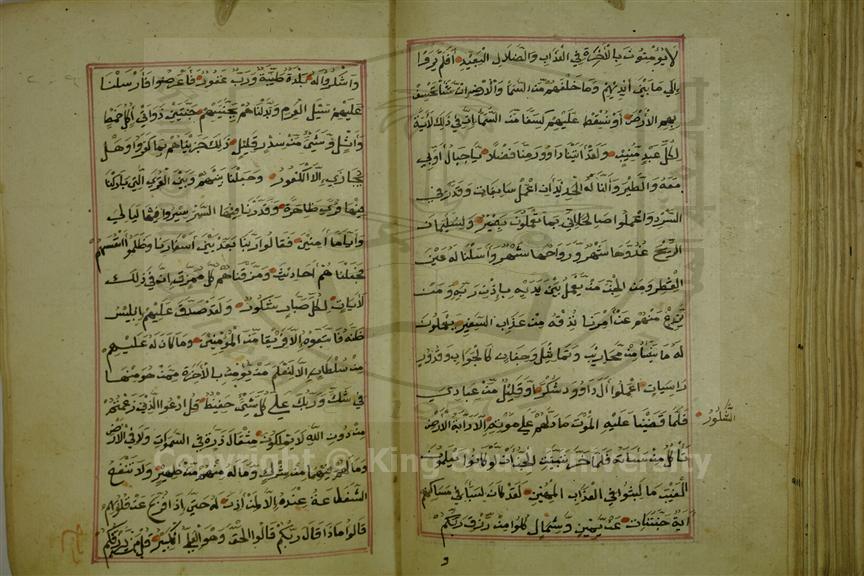 لا يؤمنون بالآخرة في العذاب والضلال البعيد أفلم يروا
إلى ما بين أيديهم وما خلفهم من السماء والأرض إن نشأ نخسف
بهم الأرض أو نسقط عليهم كسفا من السماء إن في ذلك لآية
لكل عبد منيب ولقد آتينا داوود منا فضلا يا جبال أوبي
معه والطير وألنا له الحديد أن اعمل سابغات وقدر في
السرد واعملوا صالحا إني بما تعملون بصير ولسليمان
الريح غدوها شهر ورواحها شهر وأسلنا له عين
القطر ومن الجن من يعمل بين يديه بإذن ربه ومن
يزغ منهم عن أمرنا نذقه من عذاب السعير يعملون
له ما يشاء من محاريب وتماثيل وجفان كالجواب وقدور
راسيات اعملوا آل داوود شكرا وقليل من عبادي
الشكور
فلما قضينا عليه الموت ما دلهم على موته إلا دابة الأرض
تأكل منسأته فلما خر تبينت الجن أن لو كانوا يعلمون
الغيب ما لبثوا في العذاب المهين لقد كان لسبأ في مساكنهم
آية جنتان عن يمين وشمال كلوا من رزق ربكم
و
واشكروا له بلدة طيبة ورب غفور فأعرضوا فأرسلنا
عليهم سيل العرم وبدلناهم بجنتيهم جنتين ذواتي أكل خمط
وأثل وشيء من سدر قليل ذلك جزيناهم بما كفروا وهل
نجازي إلا الكفور وجعلنا بينهم وبين القرى التي باركنا
فيها قرى ظاهرة وقدرنا فيها السير سيروا فيها ليالي
وأياما آمنين فقالوا ربنا باعد بين أسفارنا وظلموا أنفسهم
فجعلناهم أحاديث ومزقناهم كل ممزق إن في ذلك
لآيات لكل صبار شكور ولقد صدق عليهم إبليس
ظنه فاتبعوه إلا فريقا من المؤمنين وما كان له عليهم
من سلطان إلا لنعلم من يؤمن بالآخرة ممن هو منها
في شك وربك على كل شيء حفيظ قل ادعوا الذين زعمتم
من دون الله لا يملكون مثقال ذرة في السموات ولا في الأرض
وما لهم فيهما من شرك وما له منهم من ظهير ولا تنفع
الشفاعة عنده إلا لمن أذن له حتى إذا فزع عن قلوبهم
قالوا ماذا قال ربكم قالوا الحق وهو العلي الكبير قل من يرزقكم
Copyright © King Saud University